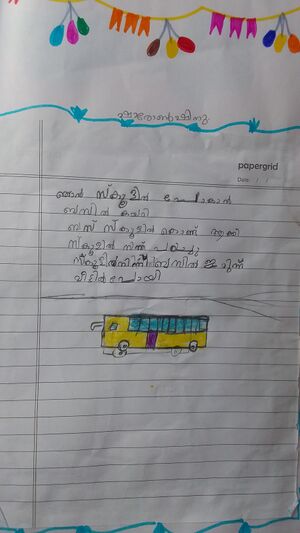 ഷാരോൺഷിനു
papergrid
Date: / /
ഞാൻ സ്കൂളിൽ പോകാൻ
ബസിൽ കയറി
ബസ് സ്കൂളിൽ കൊണ്ട് ആക്കി
സ്കൂളിൽ നിന്ന് പഠിച്ചു
സ്കൂളിൽനിന്ന് ബസിൽ
വീട്ടിൽ പോയി